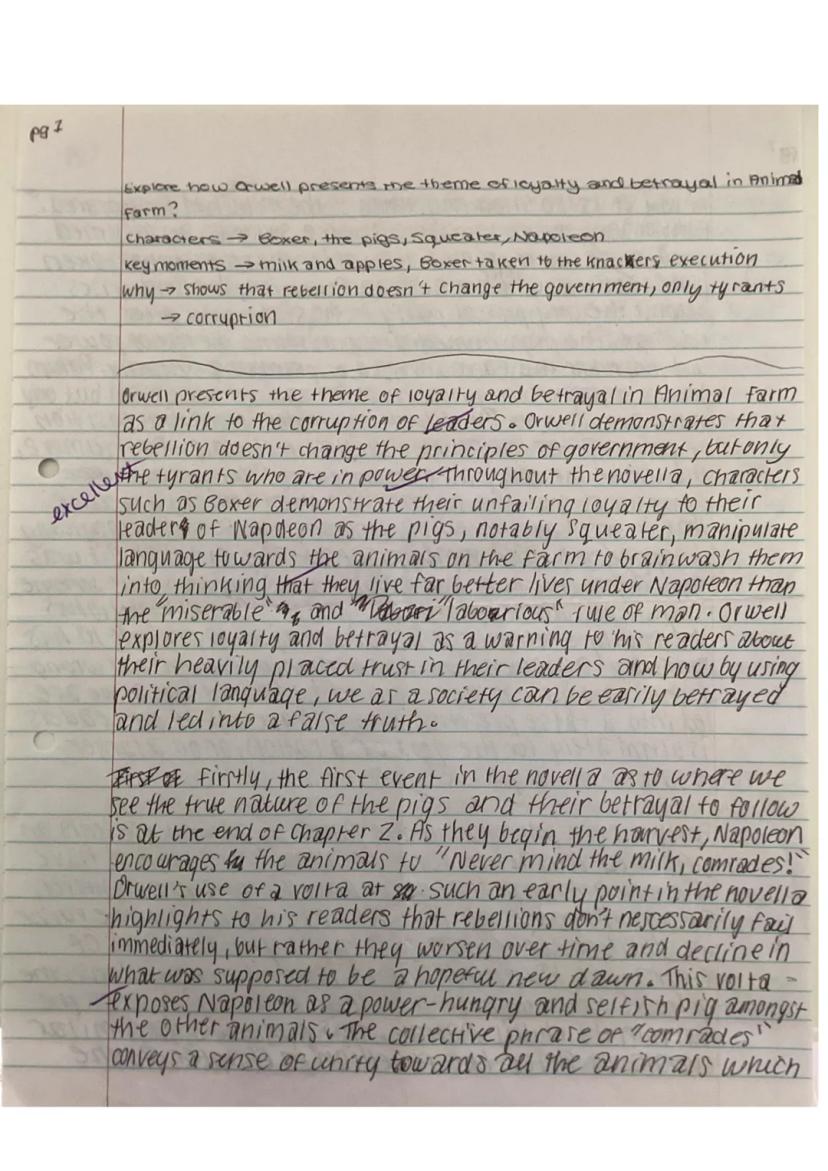 pg 1
Explore how Orwell presents the theme of loyalty and betrayal in Animal
Farm?
Characters → Boxer, the pigs, Squealer, Napoleon
Key moments → milk and apples, Boxer taken to the knackers execution
Why → shows that rebellion doesn't change the government, only tyrants
→ corruption
Orwell presents the theme of loyalty and betrayal in Animal Farm
as a link to the corruption of leaders. Orwell demonstrates that
rebellion doesn't change the principles of government, but only
excellent
the tyrants who are in power. Throughout the novella, characters
such as Boxer demonstrate their unfailing loyalty to their
leader of Napoleon as the pigs, notably Squealer, manipulate
language towards the animals on the farm to brainwash them
into thinking that they live far better lives under Napoleon than
the "miserable" and "labourious" rule of man. Orwell
explores loyalty and betrayal as a warning to his readers about
their heavily placed trust in their leaders and how by using
political language, we as a society can be easily betrayed
and led into a false truth.
First of Firstly, the first event in the novella as to where we
see the true nature of the pigs and their betrayal to follow
is at the end of Chapter 2. As they begin the harvest, Napoleon
encourages the animals to "Never mind the milk, comrades!"
Orwell's use of a volta at such an early point in the novella
highlights to his readers that rebellions don't nescessarily fail
immediately, but rather they worsen over time and decline in
what was supposed to be a hopeful new dawn. This volta
exposes Napoleon as a power-hungry and selfish pig amongst
the other animals. The collective phrase of "comrades"
conveys a sense of unity towards all the animals which